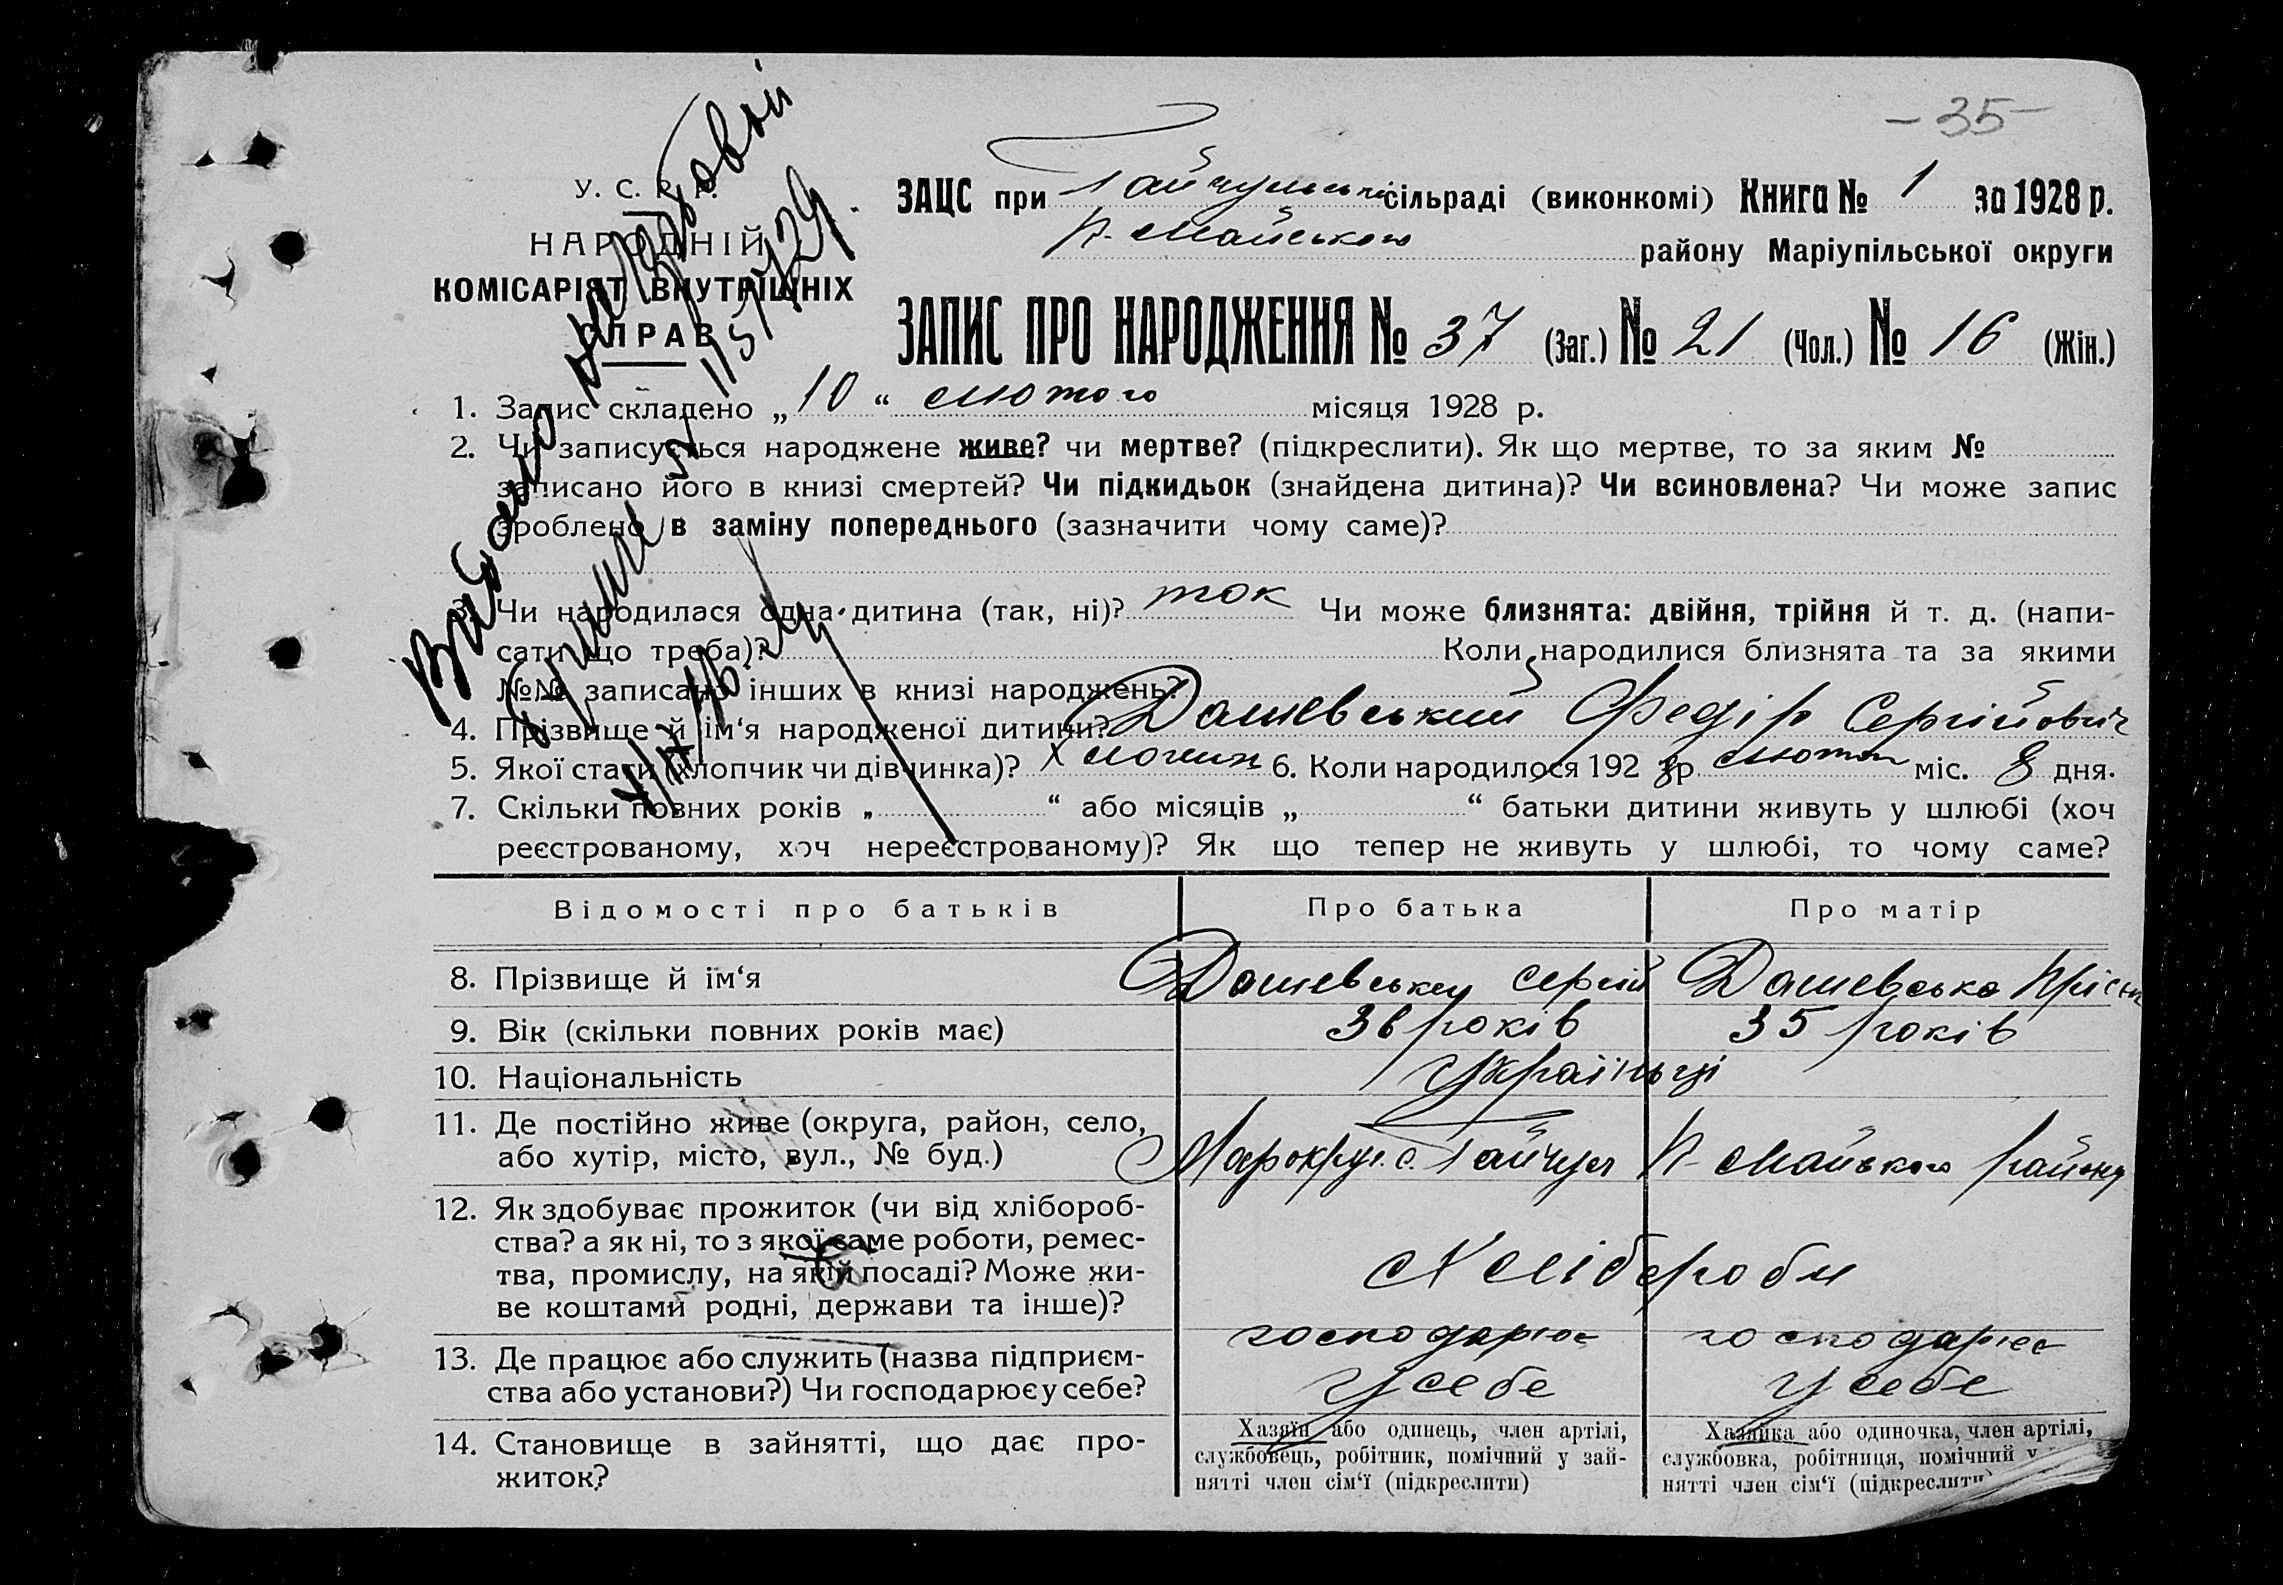 -35-
У. С. Р. Р.
НАРОДНІЙ
КОМІСАРІЯТ ВНУТРІШНІХ
СПРАВ
ЗАЦС при Гайчульські сільраді (виконкомі) Книга № 1 за 1928 р.
П-Майського району Маріупільської округи
ЗАПИС ПРО НАРОДЖЕННЯ № 37 (Заг.) № 21 (Чол.) № 16 (Жін.)
1. Запис складено „ 10 “ лютого місяця 1928 р.
2. Чи записується народжене живе? чи мертве? (підкреслити). Як що мертве, то за яким №
записано його в книзі смертей? Чи підкидьок (знайдена дитина)? Чи всиновлена? Чи може запис
зроблено в заміну попереднього (зазначити чому саме)?
3. Чи народилася одна дитина (так, ні)? так Чи може близнята: двійня, трійня й т. д. (напи-
сати що треба)? Коли народилися близнята та за якими
№№ записано інших в книзі народжень?
4. Прізвище й ім‘я народженої дитини? Дашевський Федір Сергійович
5. Якої стати (хлопчик чи дівчинка)? Хлопчик 6. Коли народилося 192 8 р. лютого міс. 8 дня.
7. Скільки повних років „ “ або місяців „ “ батьки дитини живуть у шлюбі (хоч
реєстрованому, хоч нереєстрованому)? Як що тепер не живуть у шлюбі, то чому саме?
Відомості про батьків Про батька Про матір
8. Прізвище й ім‘я Дашевський Сергій Дашевська
9. Вік (скільки повних років має) 36 років 35 років
10. Національність Українці
11. Де постійно живе (округа, район, село,
або хутір, місто, вул., № буд.) Марокруг. с. Гайчул П-Майського району
12. Як здобуває прожиток (чи від хлібороб-
ства? а як ні, то з якої саме роботи, ремес-
тва, промислу, на якій посаді? Може жи-
ве коштами родні, держави та інше)? Хлібороби
13. Де працює або служить (назва підприєм-
ства або установи?) Чи господарює у себе? господарює у себе господарює у себе
14. Становище в зайнятті, що дає про-
житок?
Хазяїн або одинець, член артілі,
службовець, робітник, помічний у зай-
нятті член сім‘ї (підкреслити)
Хазяйка або одиночка, член артілі,
службовка, робітниця, помічний у
нятті член сім‘ї (підкреслити)